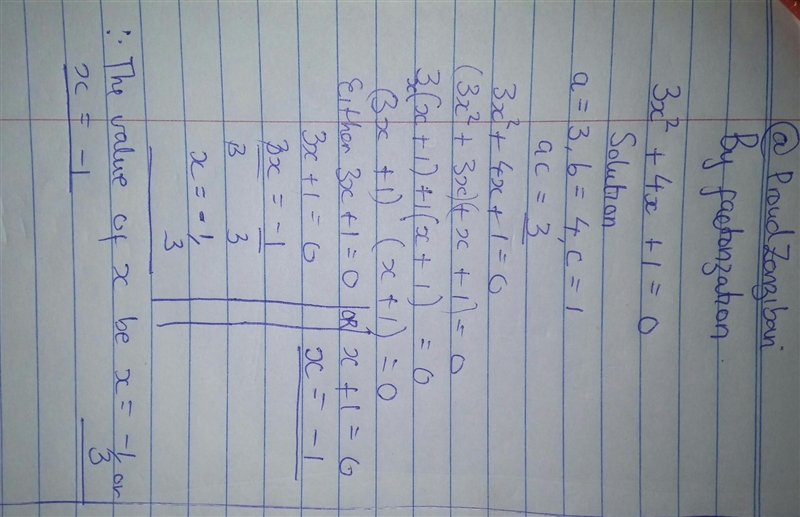 @ Proud Zanzibari
By factorization.
3x² + 4x + 1 = 0
Solution
a = 3, b = 4, c = 1
ac = 3
3x² + 4x + 1 = 0
(3x² + 3x) + x + 1) = 0
3x(x + 1) + 1(x + 1) = 0
(3x + 1) (x + 1) = 0
Either 3x + 1 = 0 OR x + 1 = 0
3x + 1 = 0 x = -1
3x = -1
3 3
x = -1/3
∴ The value of x be x = -1/3 or
x = -1